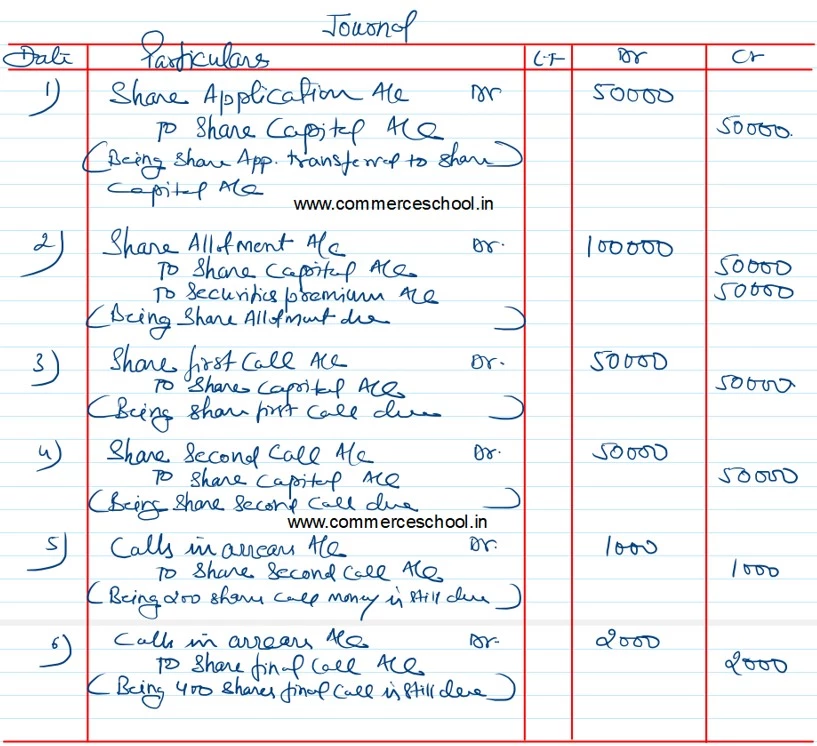 Journal
Date Particulars L.F Dr Cr
1) Share Application A/c Dr 50000
To Share Capital A/c 50000.
(Being Share App. transferred to share)
Capital A/c
www.commerceschool.in
2) Share Allotment A/c Dr. 100000
To Share Capital A/c 50000
To Securities premium A/c 50000
(Being Share Allotment due)
3) Share first Call A/c Dr. 50000
To Share Capital A/c 50000
(Being share first call due)
4) Share Second Call A/c Dr. 50000
To Share Capital A/c 50000
(Being Share Second Call due)
www.commerceschool.in
5) Calls in arrears A/c Dr. 1000
To Share Second Call A/c 1000
(Being 200 shares call money is still due)
6) Calls in arrears A/c Dr. 2000
To Share final Call A/c 2000
(Being 400 shares final call is still due)